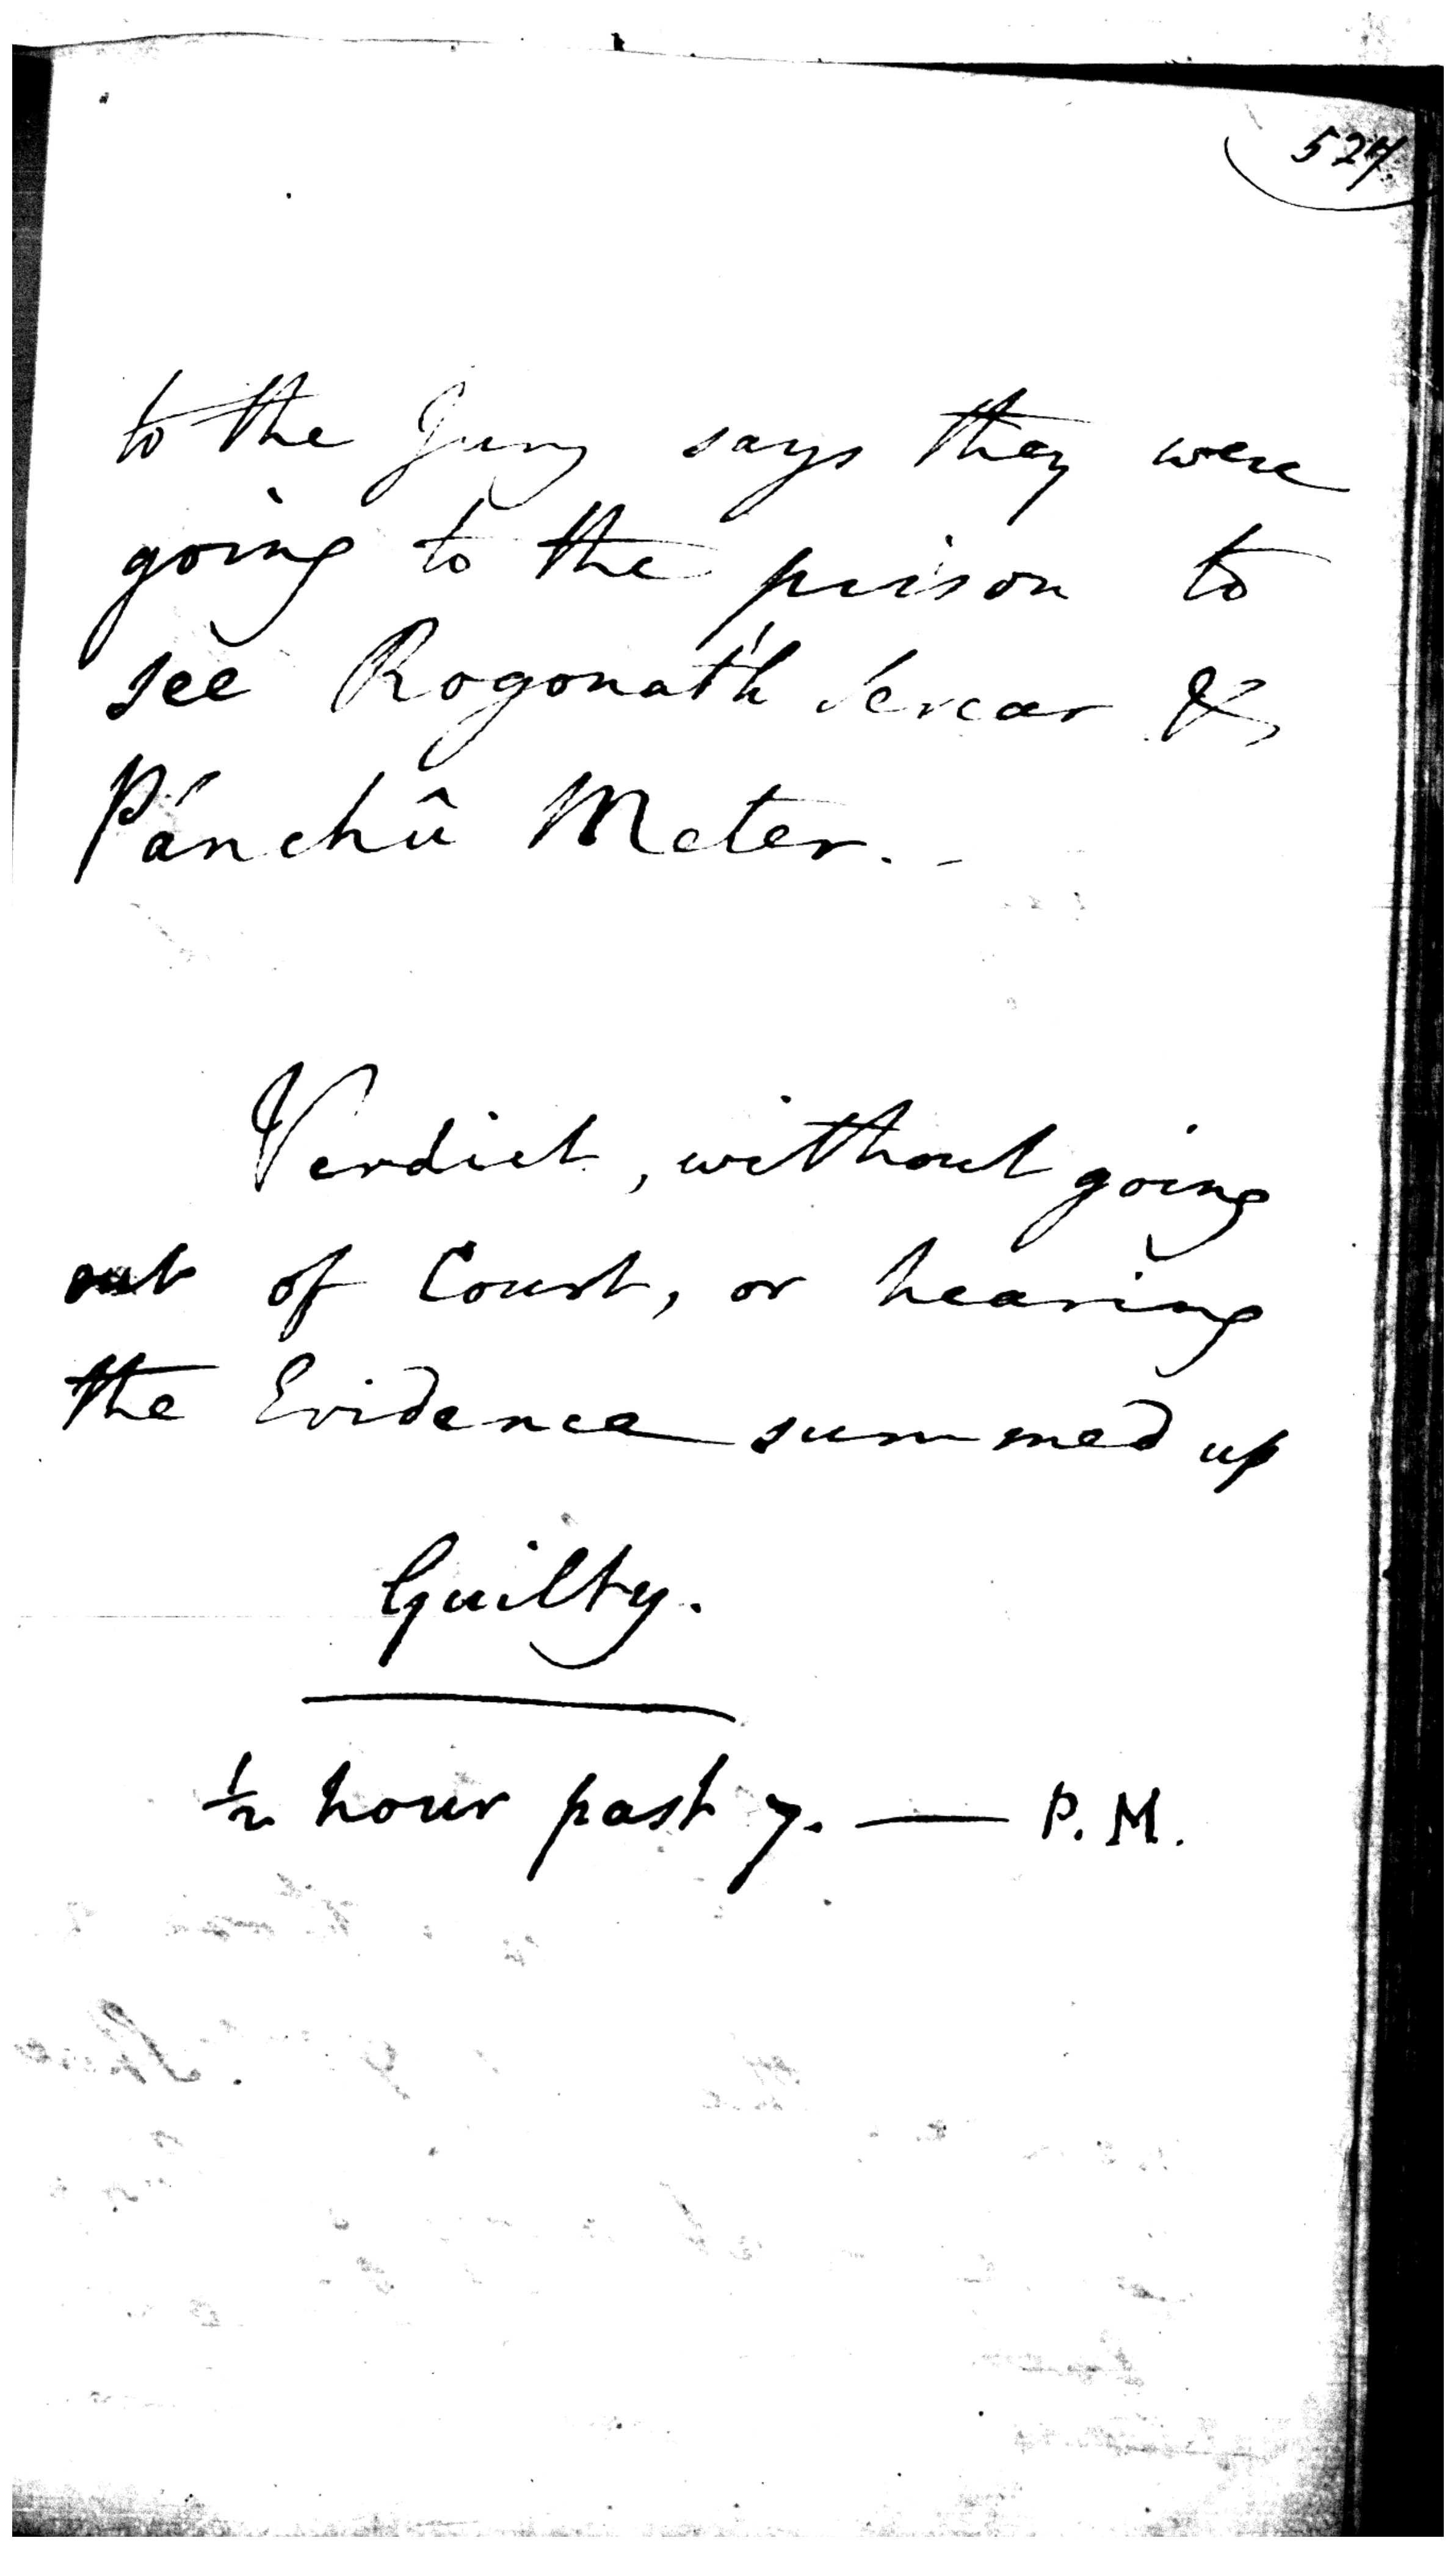 to the Jury says they were
going to the prison to
see Rogonát'h Sercar &
Pánchû Meter. -
Verdict, without going
out of Court, or hearing
the Evidence summed up
Guilty.
½ hour past 7. — P.M.